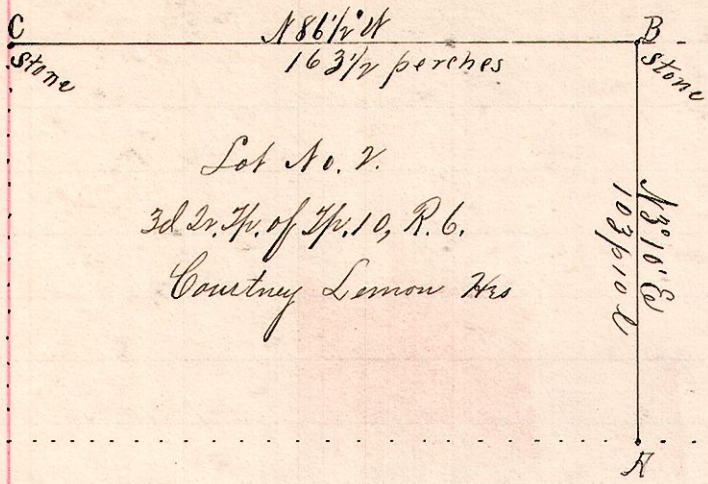 C N 86 1/2° W B
Stone 163 1/2 perches Stone
Lot No. 2.
3d Qr. Tp. of Tp. 10, R. 6.
Courtney Lemon Hrs
N 3° 10' Ed
103 p 10 l
A